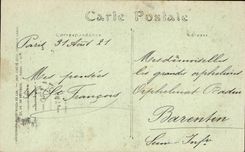 Carte Postale
Correspondance
Adresse
Paris 31 Août 21
Mes pensées
St François
Mesdemoiselles
les grandes orphelines
Orphelinat
Barentin
Seine Infre